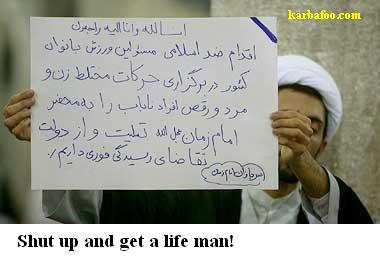 karbafoo.com
انا لله و انا الیه راجعون
اقدام ضد اسلامی مسئولین ورزش بانوان
کشور در برگزاری حرکات مختلط زن و
مرد و رقص افراد ناباب را به محضر
امام زمان عجل الله تسلیت و از دولت
تقاضای رسیدگی فوری داریم
Shut up and get a life man!